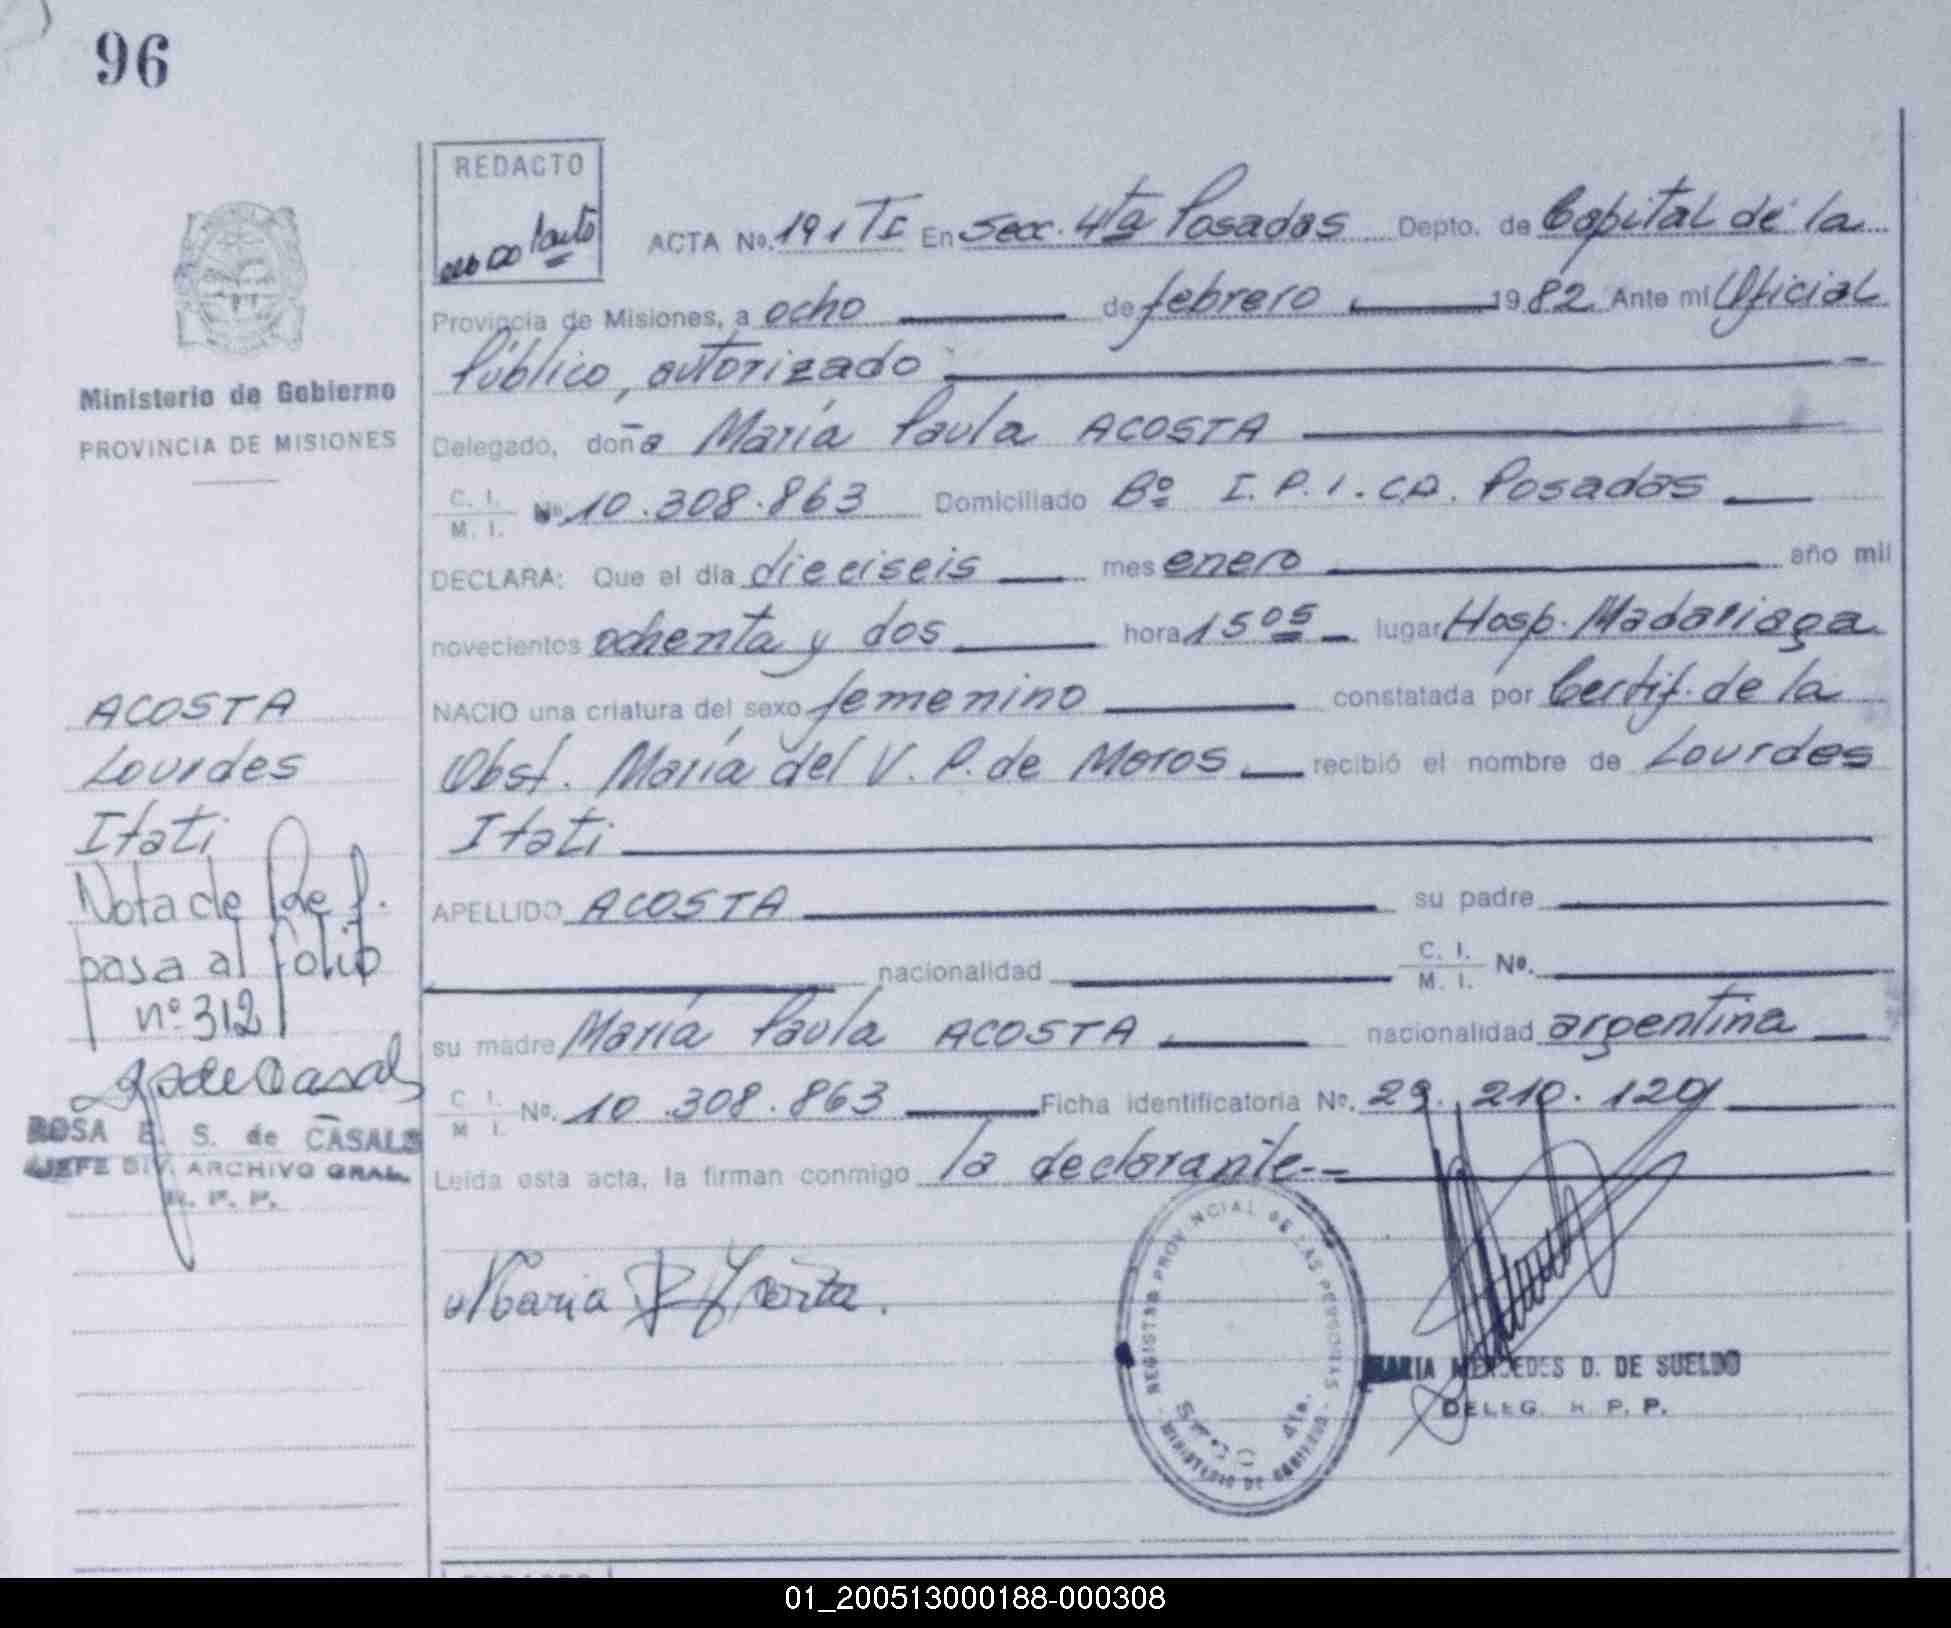 96
REDACTO
ACTA No. 191 TI En Secc. 4ta Posadas Depto. de Capital de la
Provincia de Misiones, a ocho de febrero 1982. Ante mi Oficial
Público, autorizado
Delegado, doña María Paula ACOSTA
C. I.
M. I. No. 10.308.863 Domiciliado Bº I.P.I.CA. Posadas
DECLARA: Que el día dieciseis mes enero año mil
novecientos ochenta y dos hora 15 05 lugar Hosp. Madariaga
NACIO una criatura del sexo femenino constatada por Certif. de la
Obst. María del V. P. de Moros recibió el nombre de Lourdes
Itati
APELLIDO ACOSTA su padre
nacionalidad C. I.
M. I. No.
su madre María Paula ACOSTA nacionalidad argentina
C. I.
M. I. No. 10.308.863 Ficha identificatoria No. 29.210.129
Leída esta acta, la firman conmigo la declarante.--
Maria P Acosta.
REGISTRO PROVINCIAL DE LAS PERSONAS
- MINISTERIO DE GOBIERNO -
4ta.
MARIA MERCEDES D. DE SUELDO
DELEG. R. P. P.
Ministerio de Gobierno
PROVINCIA DE MISIONES
ACOSTA
Lourdes
Itati
Nota de Ref.
pasa al folio
nº 312
de Casals
ROSA E. S. de CASALS
JEFE DIV. ARCHIVO GRAL.
R. P. P.
01_200513000188-000308